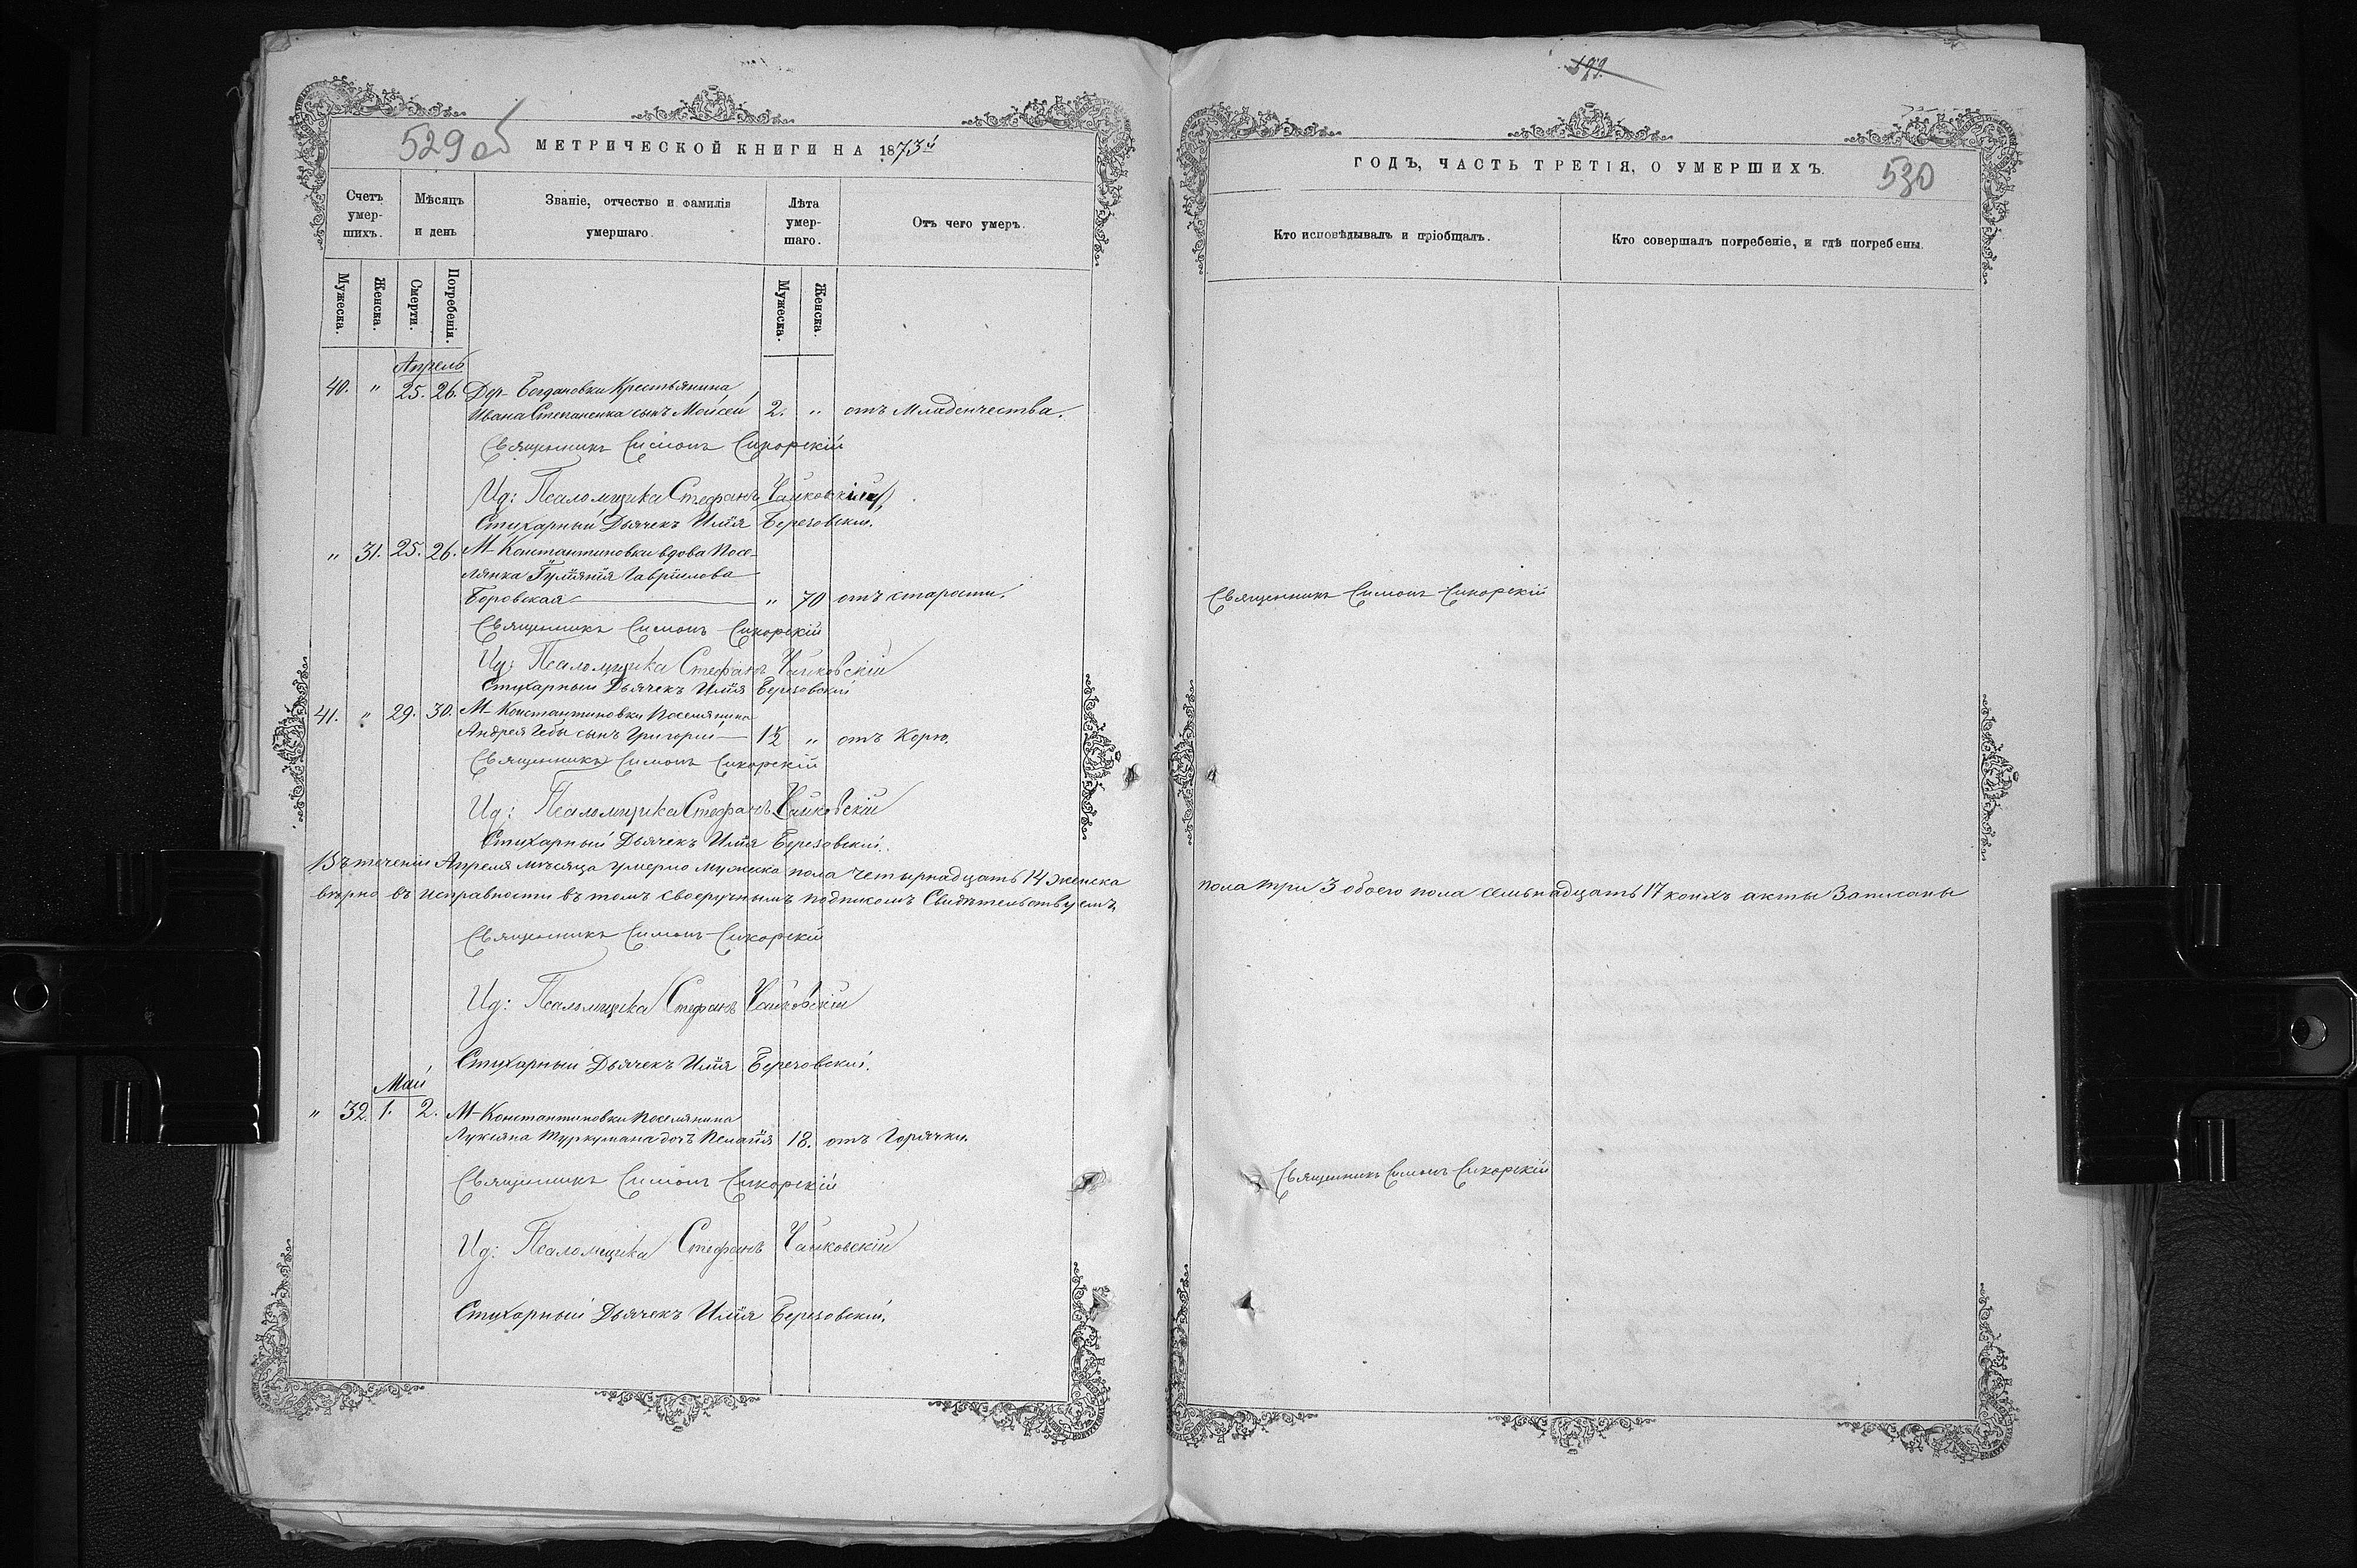 529 об
МЕТРИЧЕСКОЙ КНИГИ НА 1873й
Счетъ умер-шихъ.
Мѣсяцъ и день
Званіе, отчество и фамилія умершаго.
Лѣта умер-шаго.
Отъ чего умеръ.
Мужеска.
Женска.
Смерти.
Погребенія.
Мужеска.
Женска.
Апрель
40. " 25. 26. Дер- Богдановки Крестьянина
Ивана Степаненка сынъ Мойсей 2. " отъ младенчества.
Священникъ Симонъ Сикорскій
Ид: Псаломщика Стефанъ Чайковскій
Стихарный Дьячекъ Илія Березовскій.
" 31. 25. 26. М- Константиновки вдова Посе-
лянка Гулiянiя Гаврiилова
Боровская " 70 отъ старости.
Священникъ Симонъ Сикорскій
Ид: Псаломщика Стефанъ Чайковскій
Стихарный Дьячекъ Илія Березовскій
41. " 29. 30. М- Константиновки Поселянина
Андрея Гебы сынъ Григорій 1½ " отъ Корю.
Священникъ Симонъ Сикорскій
Ид: Псаломщика Стефанъ Чайковскій
Стихарный Дьячекъ Илія Березовскій.
Въ теченіи Апреля мѣсяца умерло мужеска пола четырнадцать 14 женска
вѣрно въ исправности въ томъ своеручнымъ подписомъ Свидѣтельствуемъ
Священникъ Симонъ Сикорскій
Ид: Псаломщика Стефанъ Чайковскій
Стихарный Дьячекъ Илія Березовскій.
Май
" 32. 1. 2. М- Константиновки Поселянина
Лукіяна Туркумана дочъ Пелагія 18. отъ Горячки.
Священникъ Симонъ Сикорскій
Ид: Псаломщика Стефанъ Чайковскій
Стихарный Дьячекъ Илія Березовскій.
199.
ГОДЪ, ЧАСТЬ ТРЕТІЯ, О УМЕРШИХЪ.
530
Кто исповѣдывалъ и пріобщалъ.
Кто совершалъ погребеніе, и гдѣ погребены.
Священникъ Симонъ Сикорскій
пола три 3 обоего пола семьнадцать 17 коихъ акты Записаны
Священникъ Симонъ Сикорскій